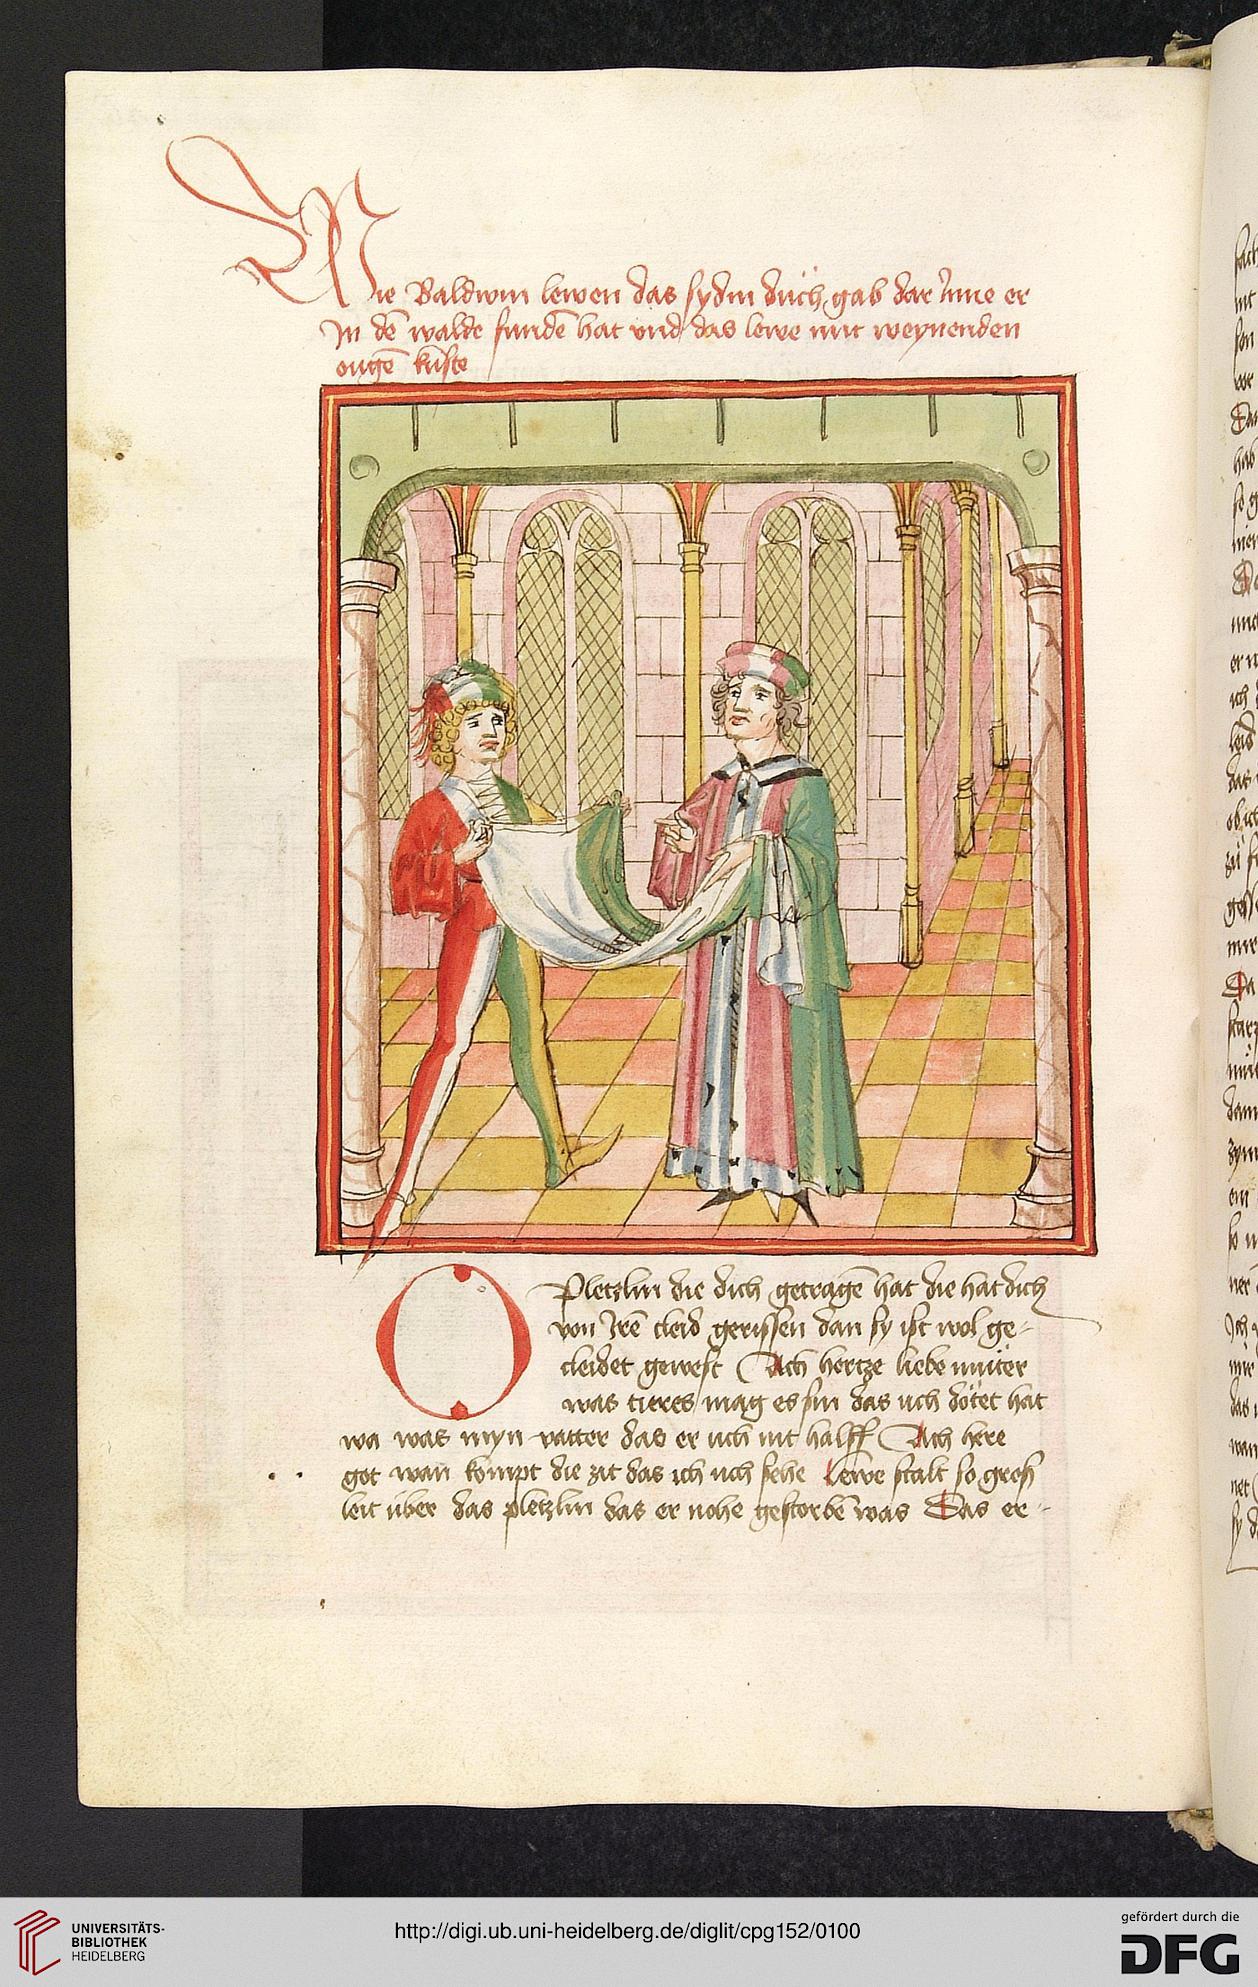 Wie Baldwin lewen das sydin düch gab dar Inne er
In dē walde fundē hat vnd das lewe mit weynenden
ougē kuste
O Pletzlin die dich getragē hat die hat dich
von Irē cleid gerissen dan sy ist wol ge-
cleidet gewest Ach hertze liebe mutër
was tieres mag es sin das uch dötet hat
wa was myn vatter das er uch nit halff Ach here
got wan kompt die zit das ich uch sehe Lewe stalt so groß
leit über das pletzlin das er nohe gestorbē was Das er-
UNIVERSITÄTS-
BIBLIOTHEK
HEIDELBERG
http://digi.ub.uni-heidelberg.de/diglit/cpg152/0100
gefördert durch die
DFG